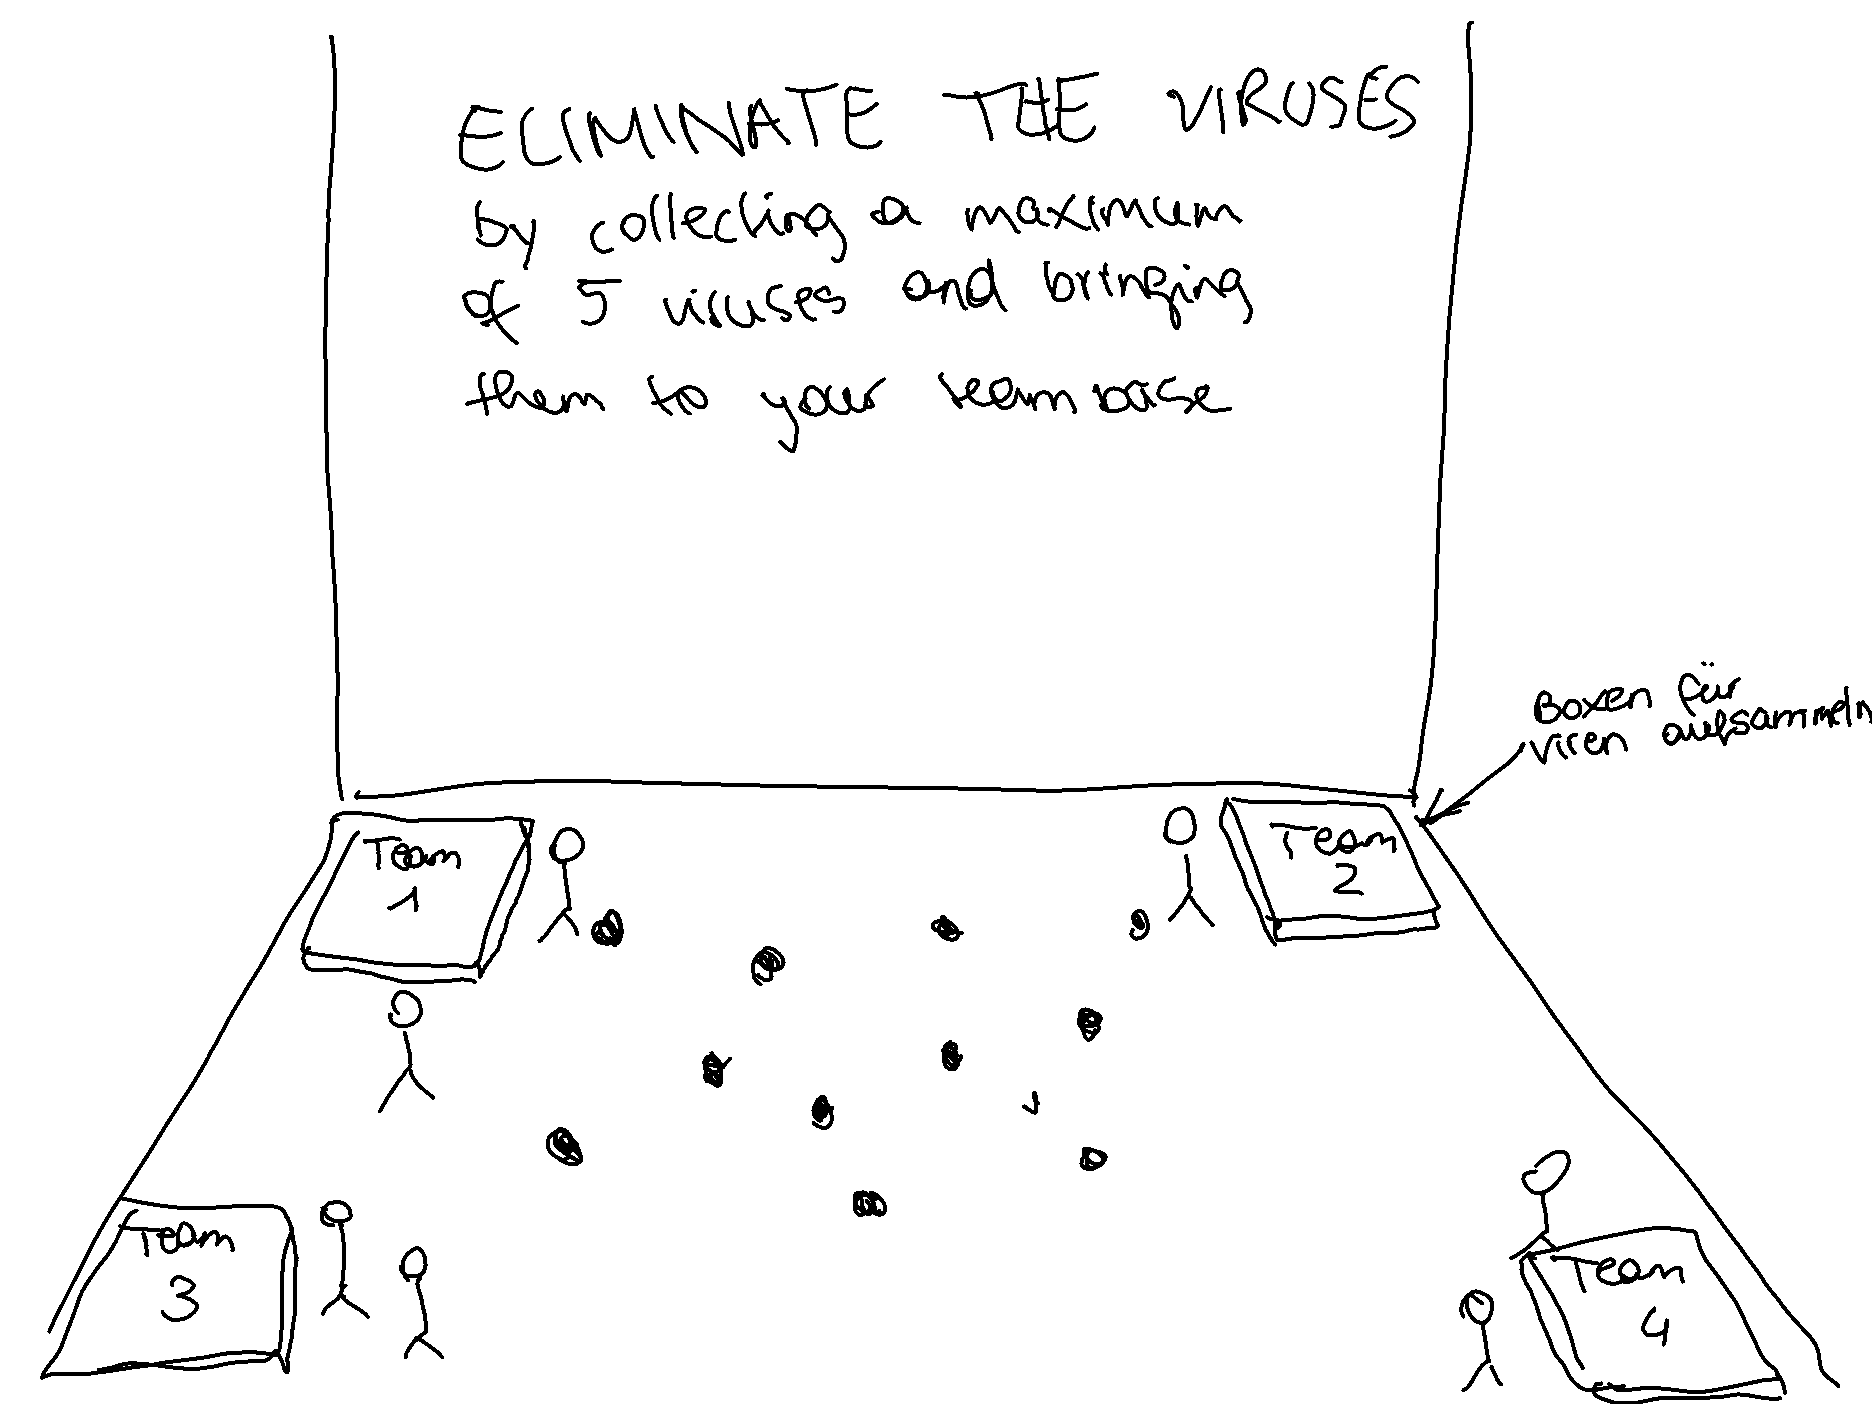 ELIMINATE THE VIRUSES
by collecting a maximum
of 5 viruses and bringing
them to your team base
Boxen für
viren aufsammeln
Team
1
Team
2
Team
3
Team
4